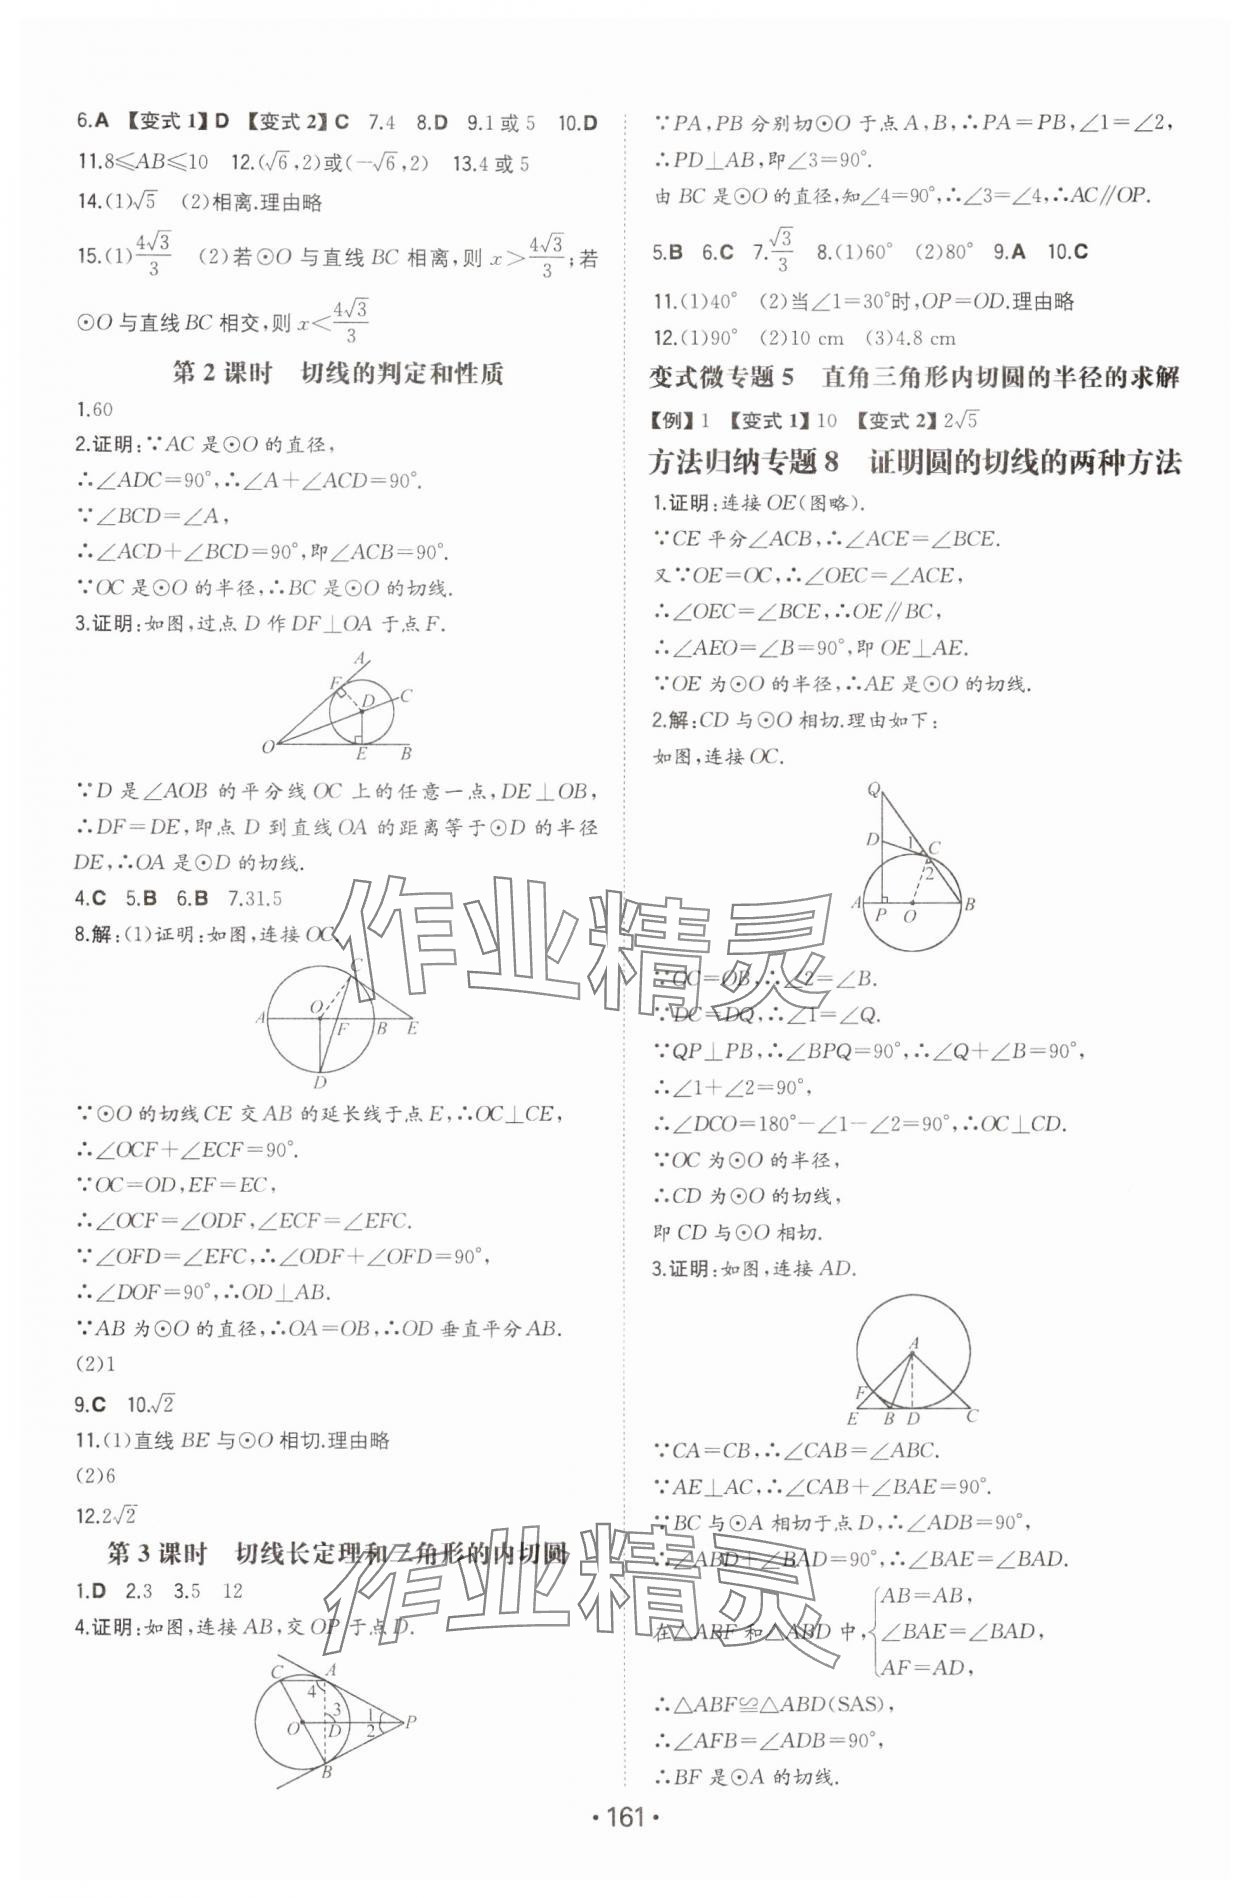 6.A 【变式1】D 【变式2】C 7.4 8.D 9.1或5 10.D
11.8≤AB≤10 12.(√6,2)或(-√6,2) 13.4或5
14.(1)√5 (2)相离.理由略
15.(1)4√3/3 (2)若⊙O与直线BC相离,则x>4√3/3;若
⊙O与直线BC相交,则x<4√3/3
第2课时 切线的判定和性质
1.60
2.证明:∵AC是⊙O的直径,
∴∠ADC=90°,∴∠A+∠ACD=90°.
∵∠BCD=∠A,
∴∠ACD+∠BCD=90°,即∠ACB=90°.
∵OC是⊙O的半径,∴BC是⊙O的切线.
3.证明:如图,过点D作DF⊥OA于点F.
A
F
D C
O E B
∵D是∠AOB的平分线OC上的任意一点,DE⊥OB,
∴DF=DE,即点D到直线OA的距离等于⊙D的半径
DE,∴OA是⊙D的切线.
4.C 5.B 6.B 7.31.5
8.解:(1)证明:如图,连接OC
C
O
A F B E
D
∵⊙O的切线CE交AB的延长线于点E,∴OC⊥CE,
∴∠OCF+∠ECF=90°.
∵OC=OD,EF=EC,
∴∠OCF=∠ODF,∠ECF=∠EFC.
∵∠OFD=∠EFC,∴∠ODF+∠OFD=90°,
∴∠DOF=90°,∴OD⊥AB.
∵AB为⊙O的直径,∴OA=OB,∴OD垂直平分AB.
(2)1
9.C 10.√2
11.(1)直线BE与⊙O相切.理由略
(2)6
12.2√2
第3课时 切线长定理和三角形的内切圆
1.D 2.3 3.5 12
4.证明:如图,连接AB,交OP于点D.
C A
4
3 1
O D 2 P
B
∵PA,PB分别切⊙O于点A,B,∴PA=PB,∠1=∠2,
∴PD⊥AB,即∠3=90°.
由BC是⊙O的直径,知∠4=90°,∴∠3=∠4,∴AC∥OP.
5.B 6.C 7.√3/3 8.(1)60° (2)80° 9.A 10.C
11.(1)40° (2)当∠1=30°时,OP=OD.理由略
12.(1)90° (2)10 cm (3)4.8 cm
变式微专题5 直角三角形内切圆的半径的求解
【例】1 【变式1】10 【变式2】2√5
方法归纳专题8 证明圆的切线的两种方法
1.证明:连接OE(图略).
∵CE平分∠ACB,∴∠ACE=∠BCE.
又∵OE=OC,∴∠OEC=∠ACE,
∴∠OEC=∠BCE,∴OE∥BC,
∴∠AEO=∠B=90°,即OE⊥AE.
∵OE为⊙O的半径,∴AE是⊙O的切线.
2.解:CD与⊙O相切.理由如下:
如图,连接OC.
Q
D 1 C
2
A P O B
∵OC=OB,∴∠2=∠B.
∵DC=DQ,∴∠1=∠Q.
∵QP⊥PB,∴∠BPQ=90°,∴∠Q+∠B=90°,
∴∠1+∠2=90°,
∴∠DCO=180°-∠1-∠2=90°,∴OC⊥CD.
∵OC为⊙O的半径,
∴CD为⊙O的切线,
即CD与⊙O相切.
3.证明:如图,连接AD.
A
F
E B D C
∵CA=CB,∴∠CAB=∠ABC.
∵AE⊥AC,∴∠CAB+∠BAE=90°.
∵BC与⊙A相切于点D,∴∠ADB=90°,
∴∠ABD+∠BAD=90°,∴∠BAE=∠BAD.
AB=AB,
在△ABF和△ABD中,{∠BAE=∠BAD,
AF=AD,
∴△ABF≌△ABD(SAS),
∴∠AFB=∠ADB=90°,
∴BF是⊙A的切线.
·161·
作业精灵
作业精灵